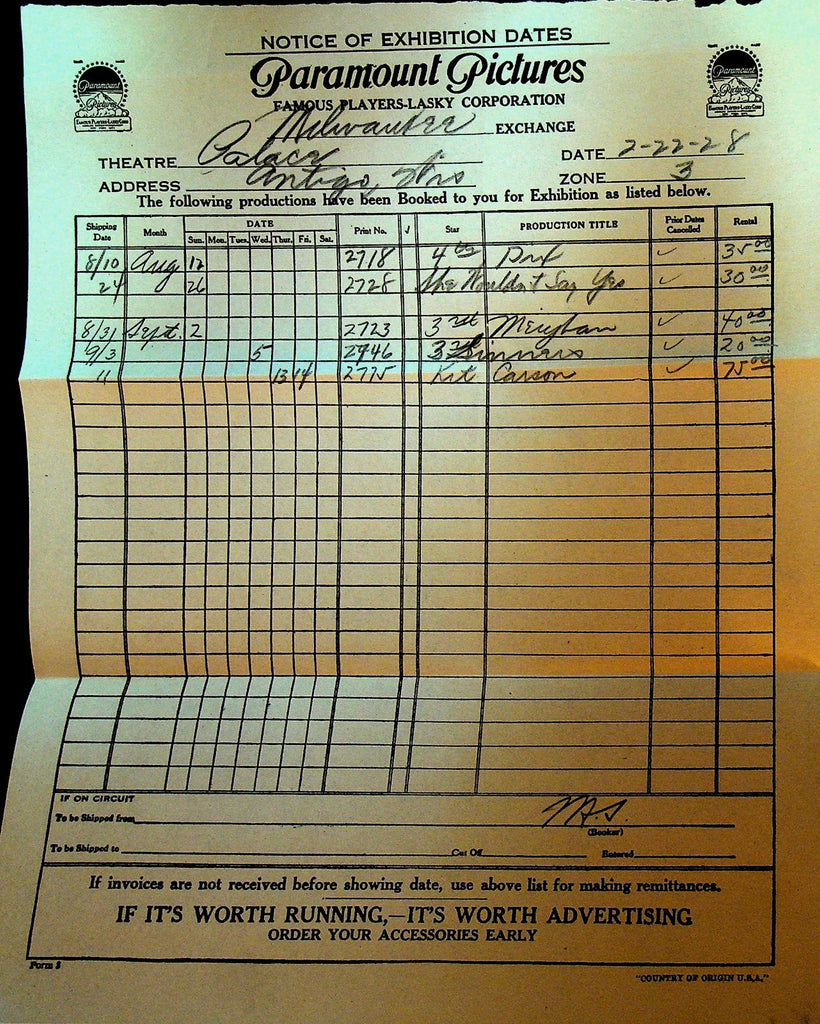 NOTICE OF EXHIBITION DATES
Paramount Pictures
FAMOUS PLAYERS-LASKY CORPORATION
Milwaukee EXCHANGE
THEATRE Palace DATE 2-22-28
ADDRESS Antigo, Wis ZONE 3
The following productions have been Booked to you for Exhibition as listed below.
Shipping Date Month DATE Print No. √ Star PRODUCTION TITLE Prior Dates Cancelled Rental
Sun. Mon. Tues. Wed. Thur. Fri. Sat.
8/10 Aug 12 2718 4th ✓ 35 00
24 26 2728 She Wouldn't Say Yes ✓ 30 00
8/31 Sept. 2 2723 3rd Meighan ✓ 40 00
9/3 5 2946 3 Sinners ✓ 20 00
11 13 14 2775 Kit Carson ✓ 75 00
IF ON CIRCUIT
To be Shipped from M.S.
(Booker)
To be Shipped to Cut Off Entered
If invoices are not received before showing date, use above list for making remittances.
IF IT'S WORTH RUNNING,—IT'S WORTH ADVERTISING
ORDER YOUR ACCESSORIES EARLY
Form 5
"COUNTRY OF ORIGIN U.S.A."